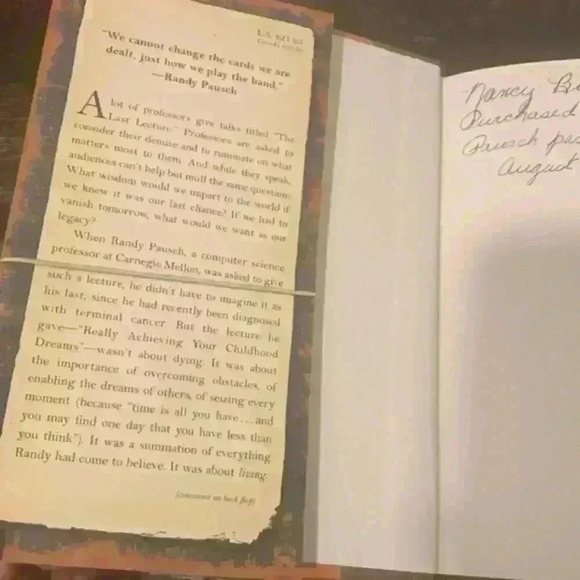 "We cannot change the cards we are
dealt, just how we play the hand."
—Randy Pausch
A lot of professors give talks titled "The
Last Lecture." Professors are asked to
consider their demise and to ruminate on what
matters most to them. And while they speak,
audiences can't help but mull the same question:
What wisdom would we impart to the world if
we knew it was our last chance? If we had to
vanish tomorrow, what would we want as our
legacy?
When Randy Pausch, a computer science
professor at Carnegie Mellon, was asked to give
such a lecture, he didn't have to imagine it as
his last, since he had recently been diagnosed
with terminal cancer. But the lecture he
gave—"Really Achieving Your Childhood
Dreams"—wasn't about dying. It was about
the importance of overcoming obstacles, of
enabling the dreams of others, of seizing every
moment (because "time is all you have...and
you may find one day that you have less than
you think"). It was a summation of everything
Randy had come to believe. It was about living.
(continued on back flap)
Nancy
Purchased
Pausch
August